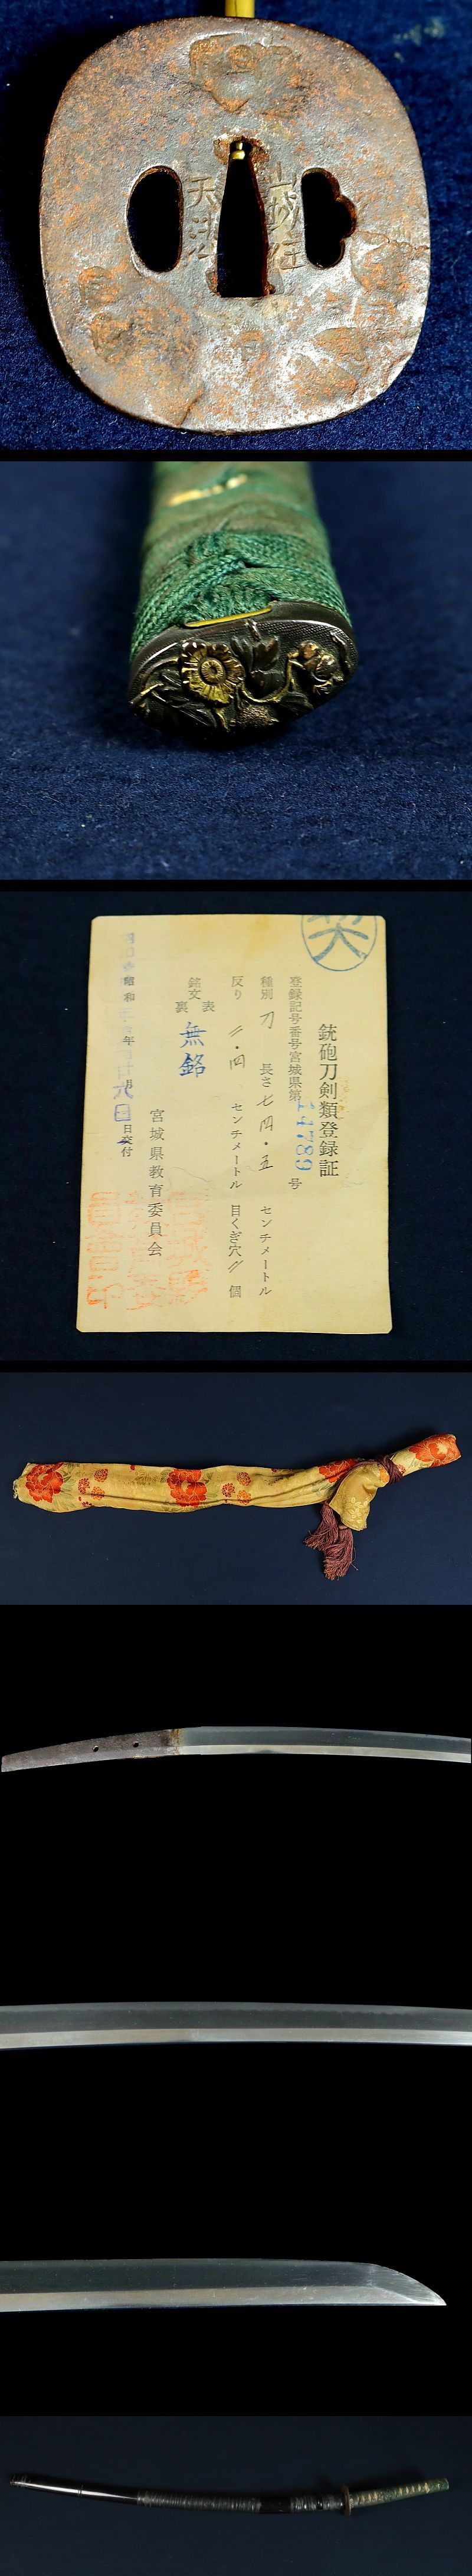 山城住
天法
銃砲刀剣類登録証
登録記号番号宮城県第 号
種別 刀 長さ 七四・五 センチメートル
反り 二・四 センチメートル 目くぎ穴 〃 個
銘文 表 裏 無銘
昭和 年 月 日交付
宮城県教育委員会